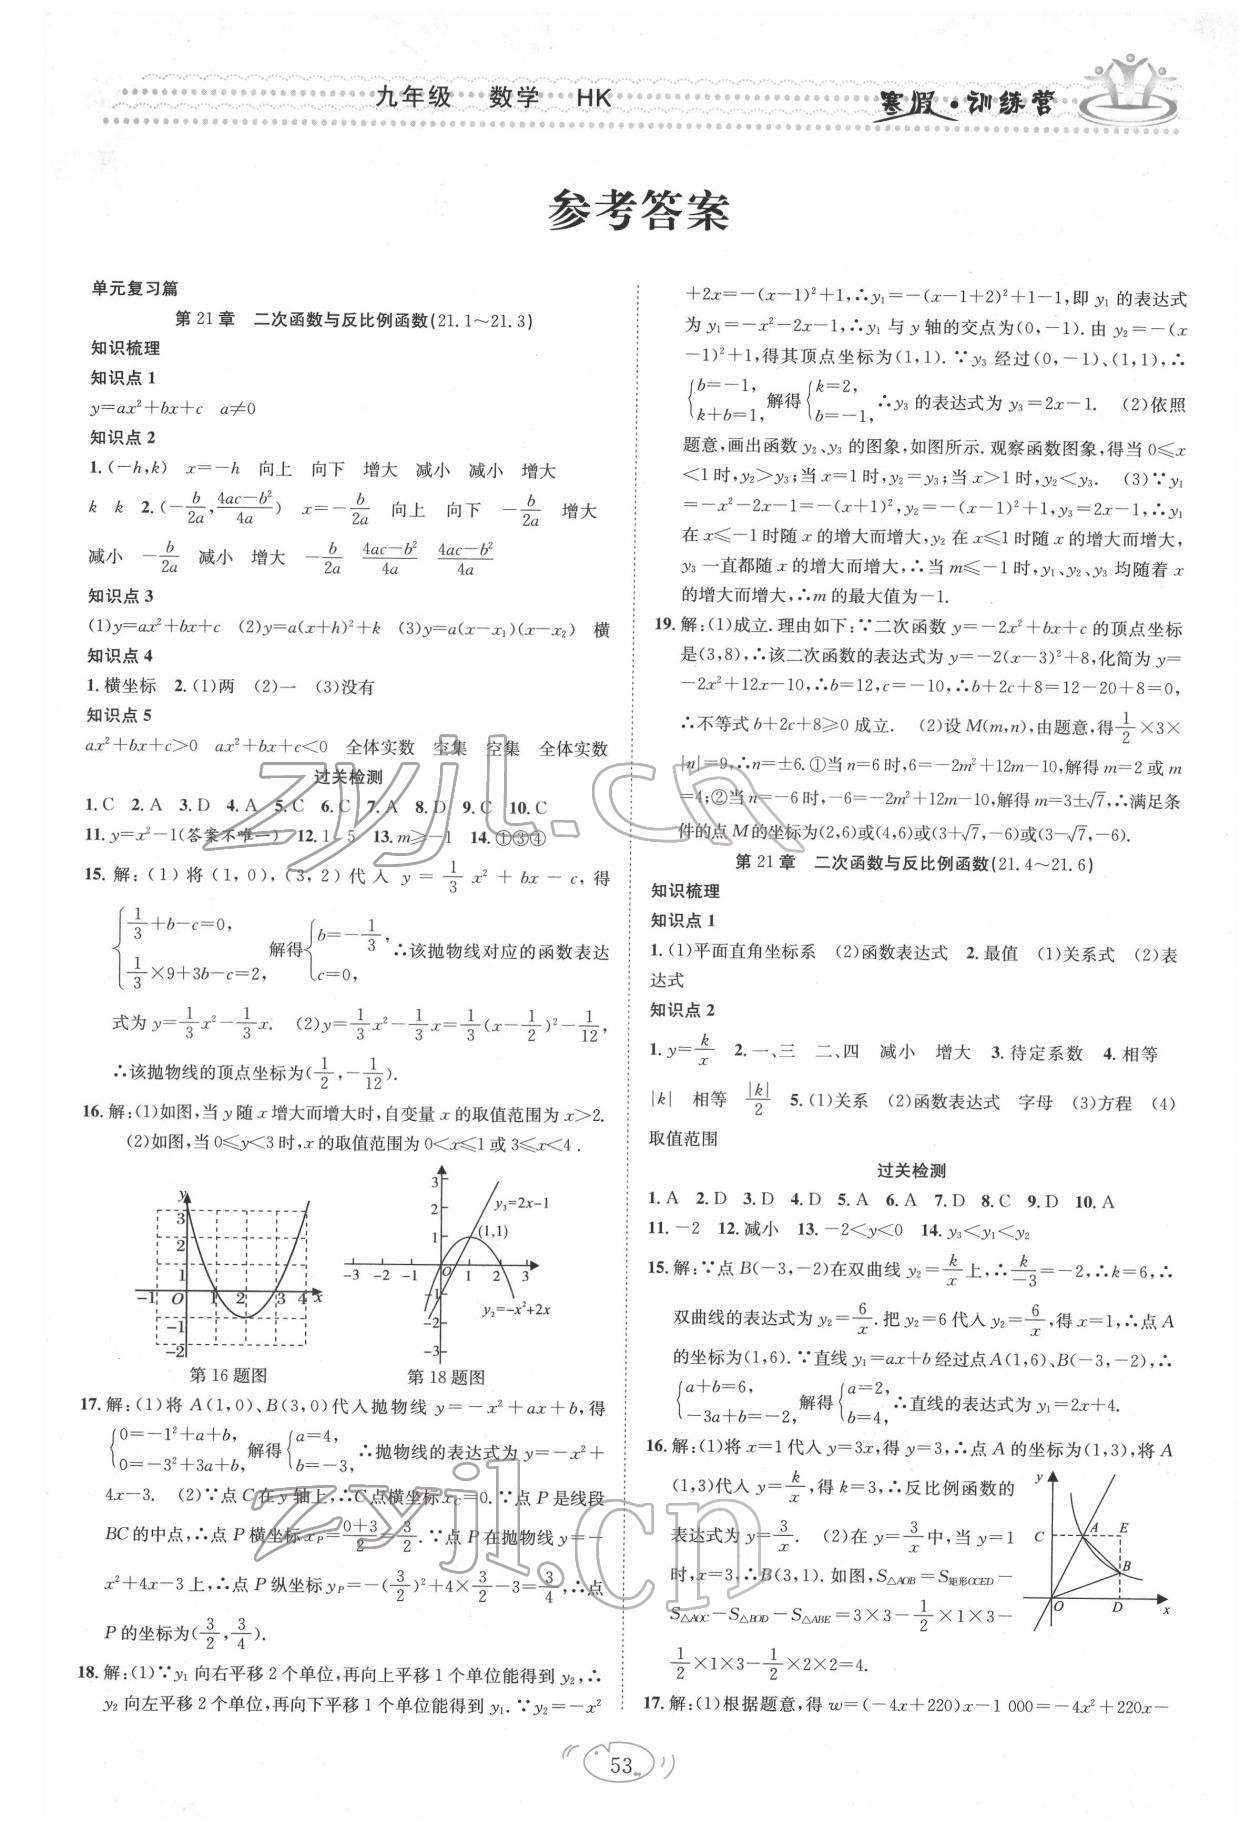 九年级 数学 HK
寒假·训练营
参考答案
单元复习篇
第 21 章 二次函数与反比例函数(21.1～21.3)
知识梳理
知识点 1
y=ax²+bx+c a≠0
知识点 2
1. (-h,k) x=-h 向上 向下 增大 减小 减小 增大
k k 2. (-b/2a, (4ac-b²)/4a) x=-b/2a 向上 向下 -b/2a 增大
减小 -b/2a 减小 增大 -b/2a (4ac-b²)/4a (4ac-b²)/4a
知识点 3
(1)y=ax²+bx+c (2)y=a(x+h)²+k (3)y=a(x-x₁)(x-x₂) 横
知识点 4
1. 横坐标 2. (1)两 (2)一 (3)没有
知识点 5
ax²+bx+c>0 ax²+bx+c<0 全体实数 空集 空集 全体实数
过关检测
1. C 2. A 3. D 4. A 5. C 6. C 7. A 8. D 9. C 10. C
11. y=x²-1(答案不唯一) 12. 1 5 13. m≥-1 14. ①③④
15. 解:(1)将(1,0),(3,2)代入 y=1/3 x²+bx-c,得
{1/3+b-c=0, 1/3×9+3b-c=2, 解得{b=-1/3, c=0, ∴该抛物线对应的函数表达
式为 y=1/3 x²-1/3 x. (2)y=1/3 x²-1/3 x=1/3(x-1/2)²-1/12,
∴该抛物线的顶点坐标为(1/2,-1/12).
16. 解:(1)如图,当 y 随 x 增大而增大时,自变量 x 的取值范围为 x>2.
(2)如图,当 0≤y<3 时,x 的取值范围为 0<x≤1 或 3≤x<4.
y
3
2
1
-1 O 1 2 3 4 x
-1
-2
第 16 题图
3
2
1
y₃=2x-1
(1,1)
-3 -2 -1 O 1 2 3
-1
-2
-3
y₂=-x²+2x
第 18 题图
17. 解:(1)将 A(1,0)、B(3,0)代入抛物线 y=-x²+ax+b,得
{0=-1²+a+b, 0=-3²+3a+b, 解得{a=4, b=-3, ∴抛物线的表达式为 y=-x²+
4x-3. (2)∵点 C 在 y 轴上,∴C 点横坐标 x_C=0. ∵点 P 是线段
BC 的中点,∴点 P 横坐标 x_P=(0+3)/2=3/2. ∵点 P 在抛物线 y=-
x²+4x-3 上,∴点 P 纵坐标 y_P=-(3/2)²+4×3/2-3=3/4,∴点
P 的坐标为(3/2,3/4).
18. 解:(1)∵y₁ 向右平移 2 个单位,再向上平移 1 个单位能得到 y₂,∴
y₂ 向左平移 2 个单位,再向下平移 1 个单位能得到 y₁. ∵y₂=-x²
+2x=-(x-1)²+1,∴y₁=-(x-1+2)²+1-1,即 y₁ 的表达式
为 y₁=-x²-2x-1,∴y₁ 与 y 轴的交点为(0,-1). 由 y₂=-(x
-1)²+1,得其顶点坐标为(1,1). ∵y₃ 经过(0,-1)、(1,1),∴
{b=-1, k+b=1, 解得{k=2, b=-1, ∴y₃ 的表达式为 y₃=2x-1. (2)依照
题意,画出函数 y₂、y₃ 的图象,如图所示. 观察函数图象,得当 0≤x
<1 时,y₂>y₃;当 x=1 时,y₂=y₃;当 x>1 时,y₂<y₃. (3)∵y₁
=-x²-2x-1=-(x+1)²,y₂=-(x-1)²+1,y₃=2x-1,∴y₁
在 x≤-1 时随 x 的增大而增大,y₂ 在 x≤1 时随 x 的增大而增大,
y₃ 一直都随 x 的增大而增大,∴当 m≤-1 时,y₁、y₂、y₃ 均随着 x
的增大而增大,∴m 的最大值为-1.
19. 解:(1)成立. 理由如下:∵二次函数 y=-2x²+bx+c 的顶点坐标
是(3,8),∴该二次函数的表达式为 y=-2(x-3)²+8,化简为 y=
-2x²+12x-10,∴b=12,c=-10,∴b+2c+8=12-20+8=0,
∴不等式 b+2c+8≥0 成立. (2)设 M(m,n),由题意,得1/2×3×
|n|=9,∴n=±6. ①当 n=6 时,6=-2m²+12m-10,解得 m=2 或 m
=4;②当 n=-6 时,-6=-2m²+12m-10,解得 m=3±√7,∴满足条
件的点 M 的坐标为(2,6)或(4,6)或(3+√7,-6)或(3-√7,-6).
第 21 章 二次函数与反比例函数(21.4～21.6)
知识梳理
知识点 1
1. (1)平面直角坐标系 (2)函数表达式 2. 最值 (1)关系式 (2)表
达式
知识点 2
1. y=k/x 2. 一、三 二、四 减小 增大 3. 待定系数 4. 相等
|k| 相等 |k|/2 5. (1)关系 (2)函数表达式 字母 (3)方程 (4)
取值范围
过关检测
1. A 2. D 3. D 4. D 5. A 6. A 7. D 8. C 9. D 10. A
11. -2 12. 减小 13. -2<y<0 14. y₃<y₁<y₂
15. 解:∵点 B(-3,-2)在双曲线 y₂=k/x 上,∴k/-3=-2,∴k=6,∴
双曲线的表达式为 y₂=6/x. 把 y₂=6 代入 y₂=6/x,得 x=1,∴点 A
的坐标为(1,6). ∵直线 y₁=ax+b 经过点 A(1,6)、B(-3,-2),∴
{a+b=6, -3a+b=-2, 解得{a=2, b=4, ∴直线的表达式为 y₁=2x+4.
16. 解:(1)将 x=1 代入 y=3x,得 y=3,∴点 A 的坐标为(1,3),将 A
(1,3)代入 y=k/x,得 k=3,∴反比例函数的
表达式为 y=3/x. (2)在 y=3/x 中,当 y=1
时,x=3,∴B(3,1). 如图,S△AOB=S矩形OCED-
S△AOC-S△BOD-S△ABE=3×3-1/2×1×3-
1/2×1×3-1/2×2×2=4.
y
C A E
B
O D x
17. 解:(1)根据题意,得 w=(-4x+220)x-1 000=-4x²+220x-
53
zyjl.cn
zyjl.cn